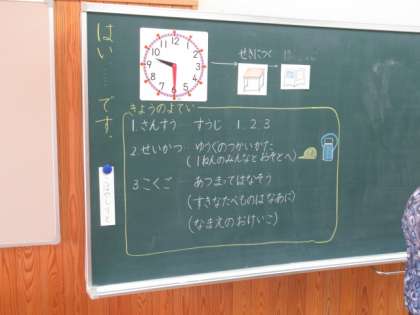 はい……です。
12
1
2
3
4
5
6
7
8
9
10
11
せきにつく
きょうのよてい
1.さんすう すうじ 1.2.3
2.せいかつ… ゆうぐのつかいかた
(1ねんのみんなと おそとへ)
3.こくご… あつまってはなそう
(すきなたべものは なあに)
(なまえのおけいこ)